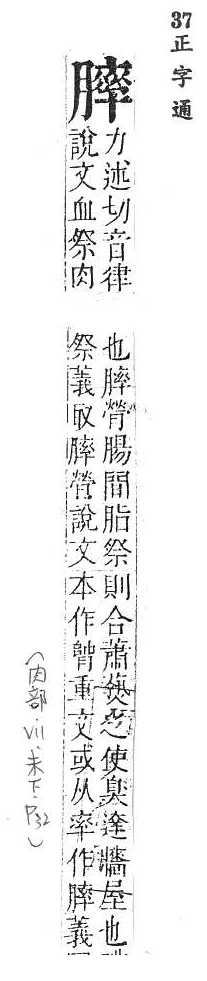 37正字通
膟
力述切音律
說文血祭肉
也膟膋腸間脂祭則合蕭爇之使臭達牆屋也
祭義取膟膋說文本作重文或从率作膟義
(肉部.vii.未下.P32)